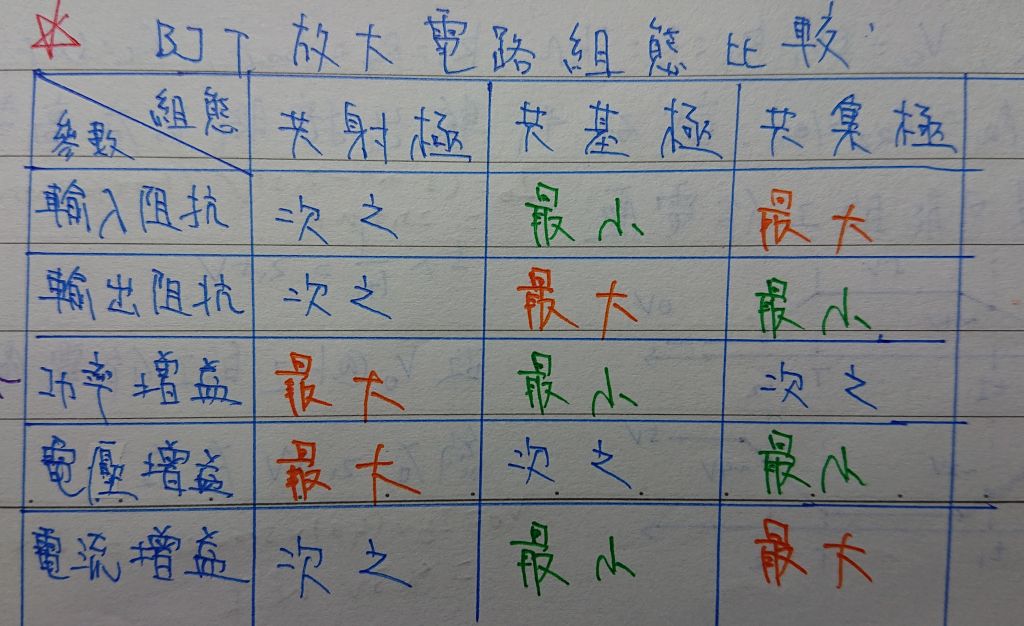 BJT 放大電路組態比較
組態 參數 共射極 共基極 共集極
輸入阻抗 次之 最小 最大
輸出阻抗 次之 最大 最小
功率增益 最大 最小 次之
電壓增益 最大 次之 最小
電流增益 次之 最小 最大